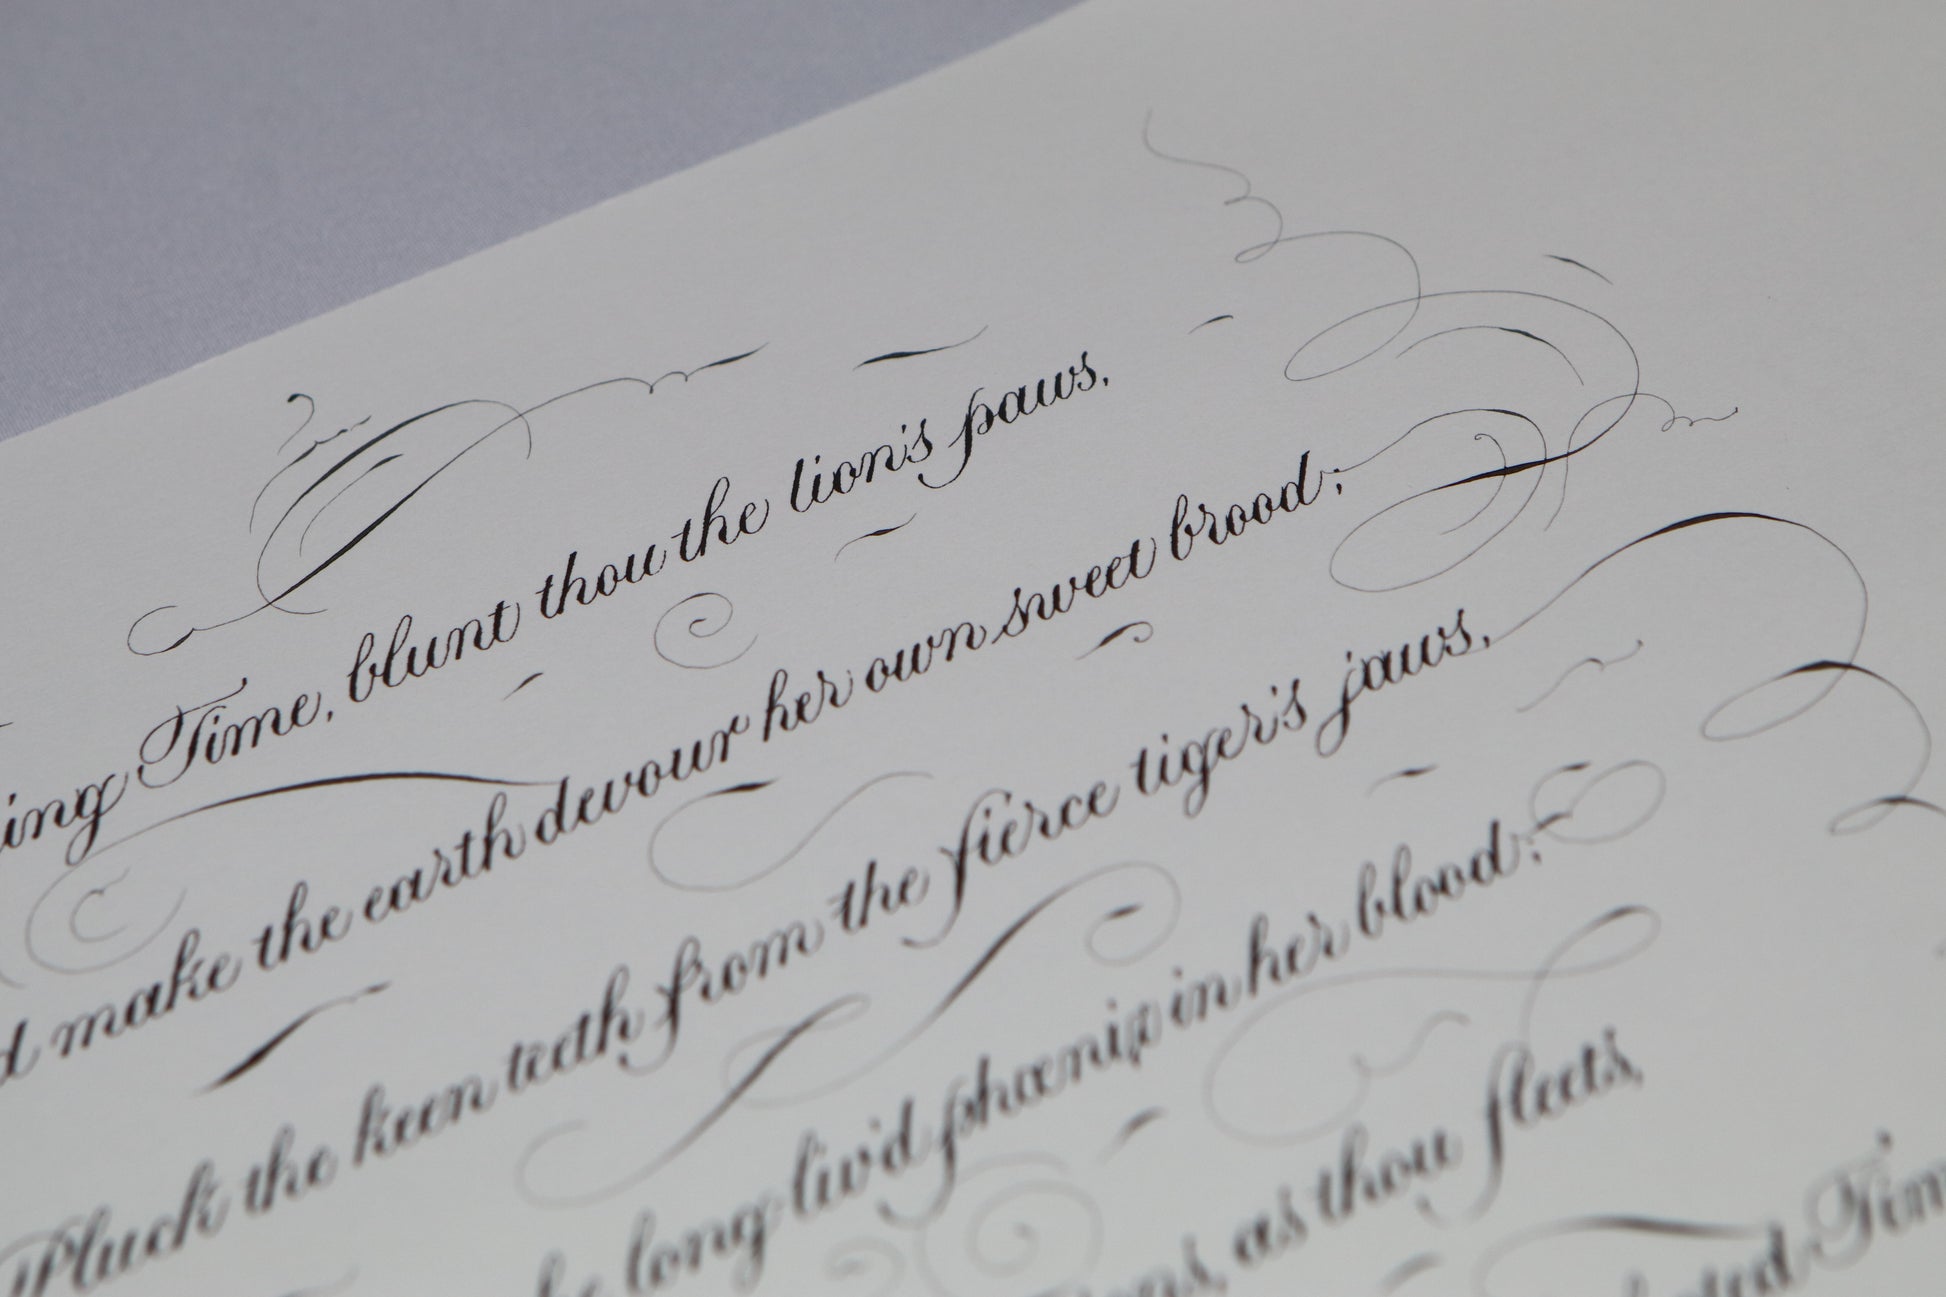 ing Time, blunt thou the lion's paws,
d make the earth devour her own sweet brood;
Pluck the keen teeth from the fierce tiger's jaws,
e long-liv'd phœnix in her blood;
ons, as thou fleets,
ted Tim